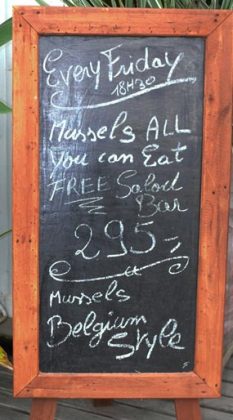 Every Friday
18H30
Mussels ALL
You can Eat
FREE Salad
Bar
295,-
Mussels
Belgium
Style